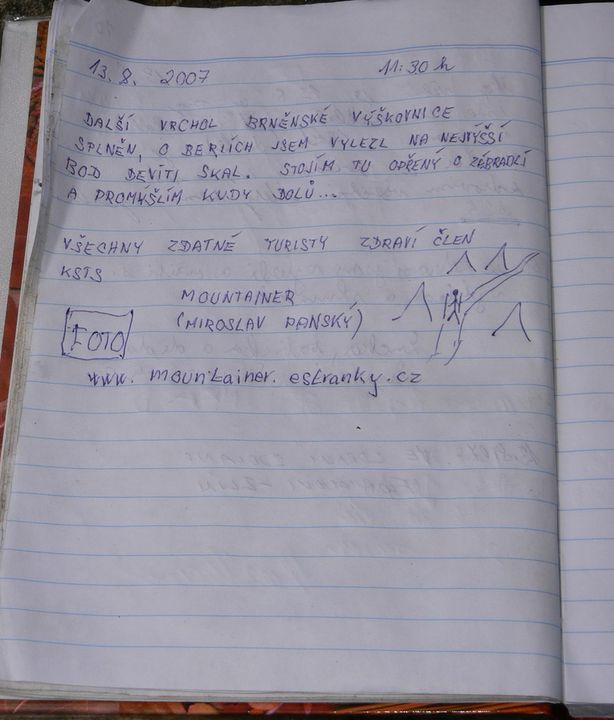 13. 8. 2007 11:30 h
DALŠÍ VRCHOL BRNĚNSKÉ VÝŠKOVNICE
SPLNĚN, O BERLÍCH JSEM VYLEZL NA NEJVYŠŠÍ
BOD DEVÍTI SKAL. STOJÍM TU OPŘENÝ O ZÁBRADLÍ
A PROMÝŠLÍM KUDY DOLŮ...
VŠECHNY ZDATNÉ TURISTY ZDRAVÍ ČLEN
KSTS
MOUNTAINER
(MIROSLAV PANSKÝ)
FOTO
www. mountainer. estranky.cz